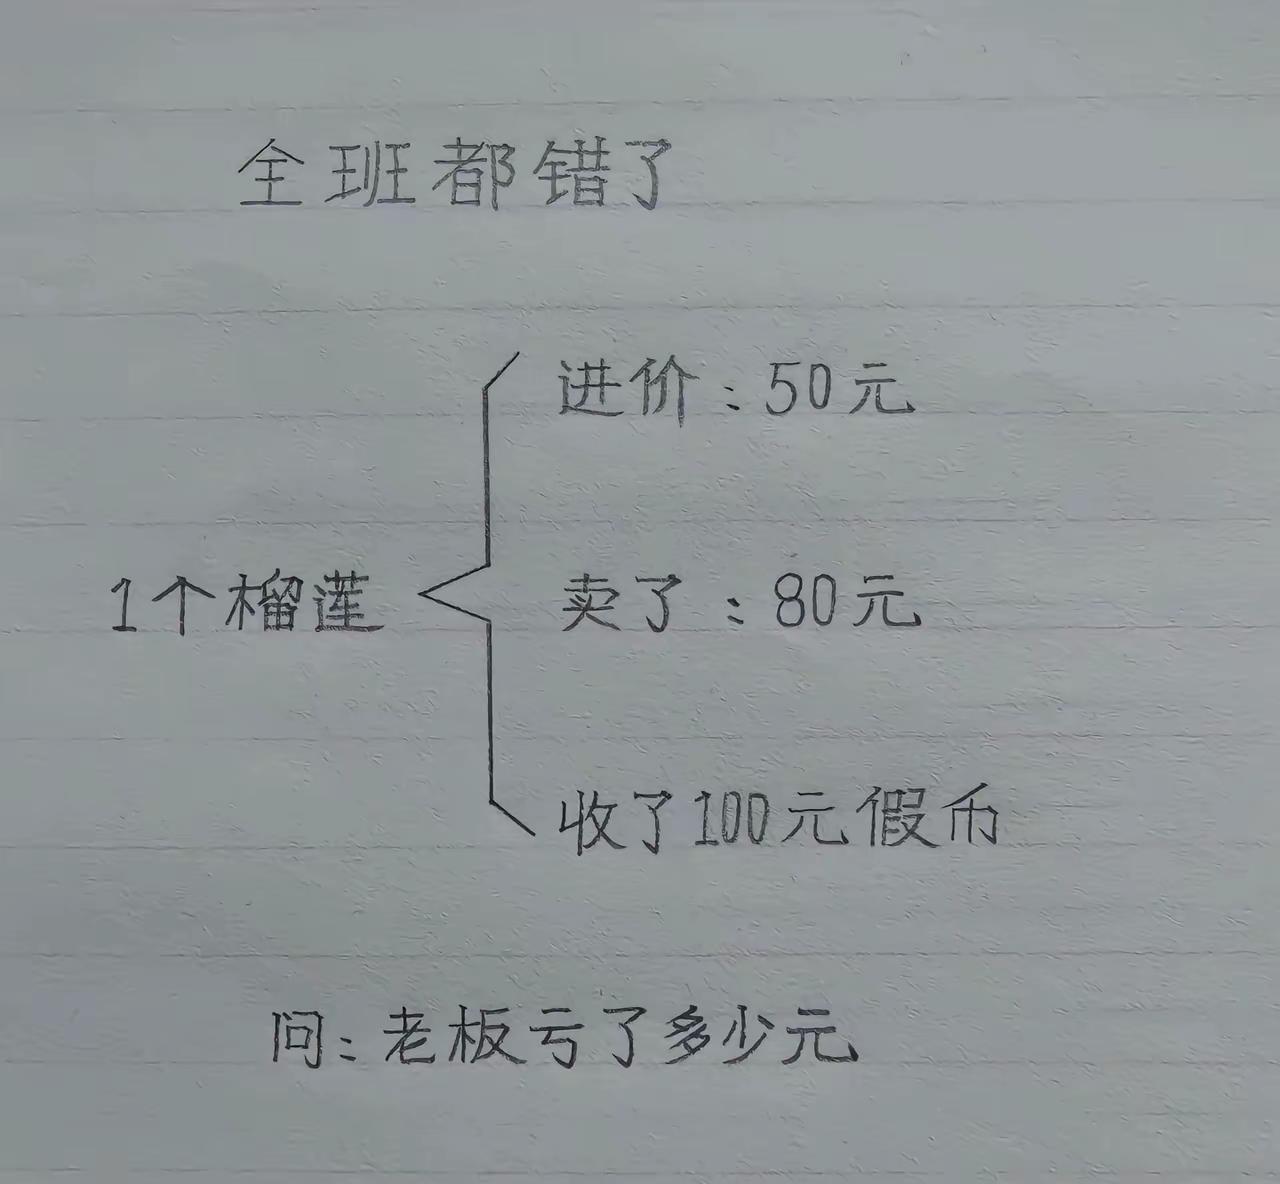 全班都错了
进价：50元
1个榴莲
卖了：80元
收了100元假币
问：老板亏了多少元